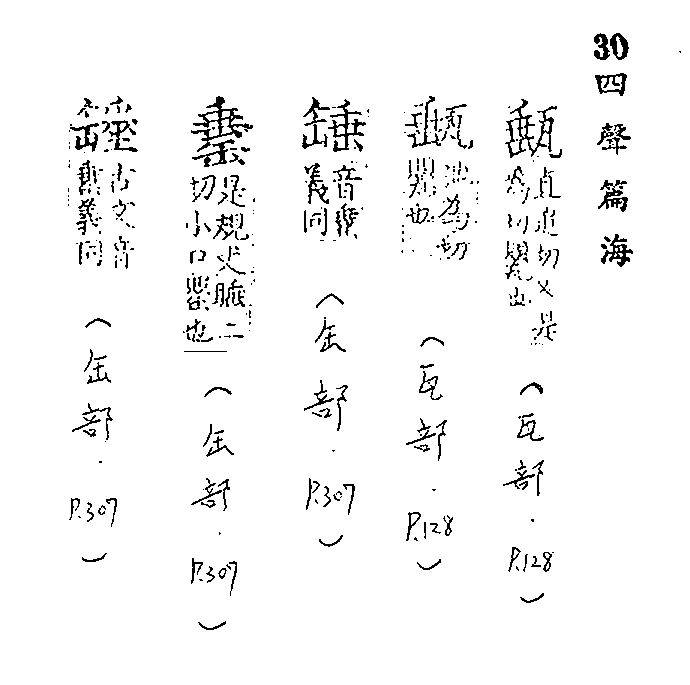 30 四聲篇海
甀 直追切又是為切甖也 (瓦部.P.128)
池為切甖也 (瓦部.P.128)
音義同 (缶部.P.307)
是規火睡二切小口罌也 (缶部.P.307)
古文音義同 (缶部.P.307)